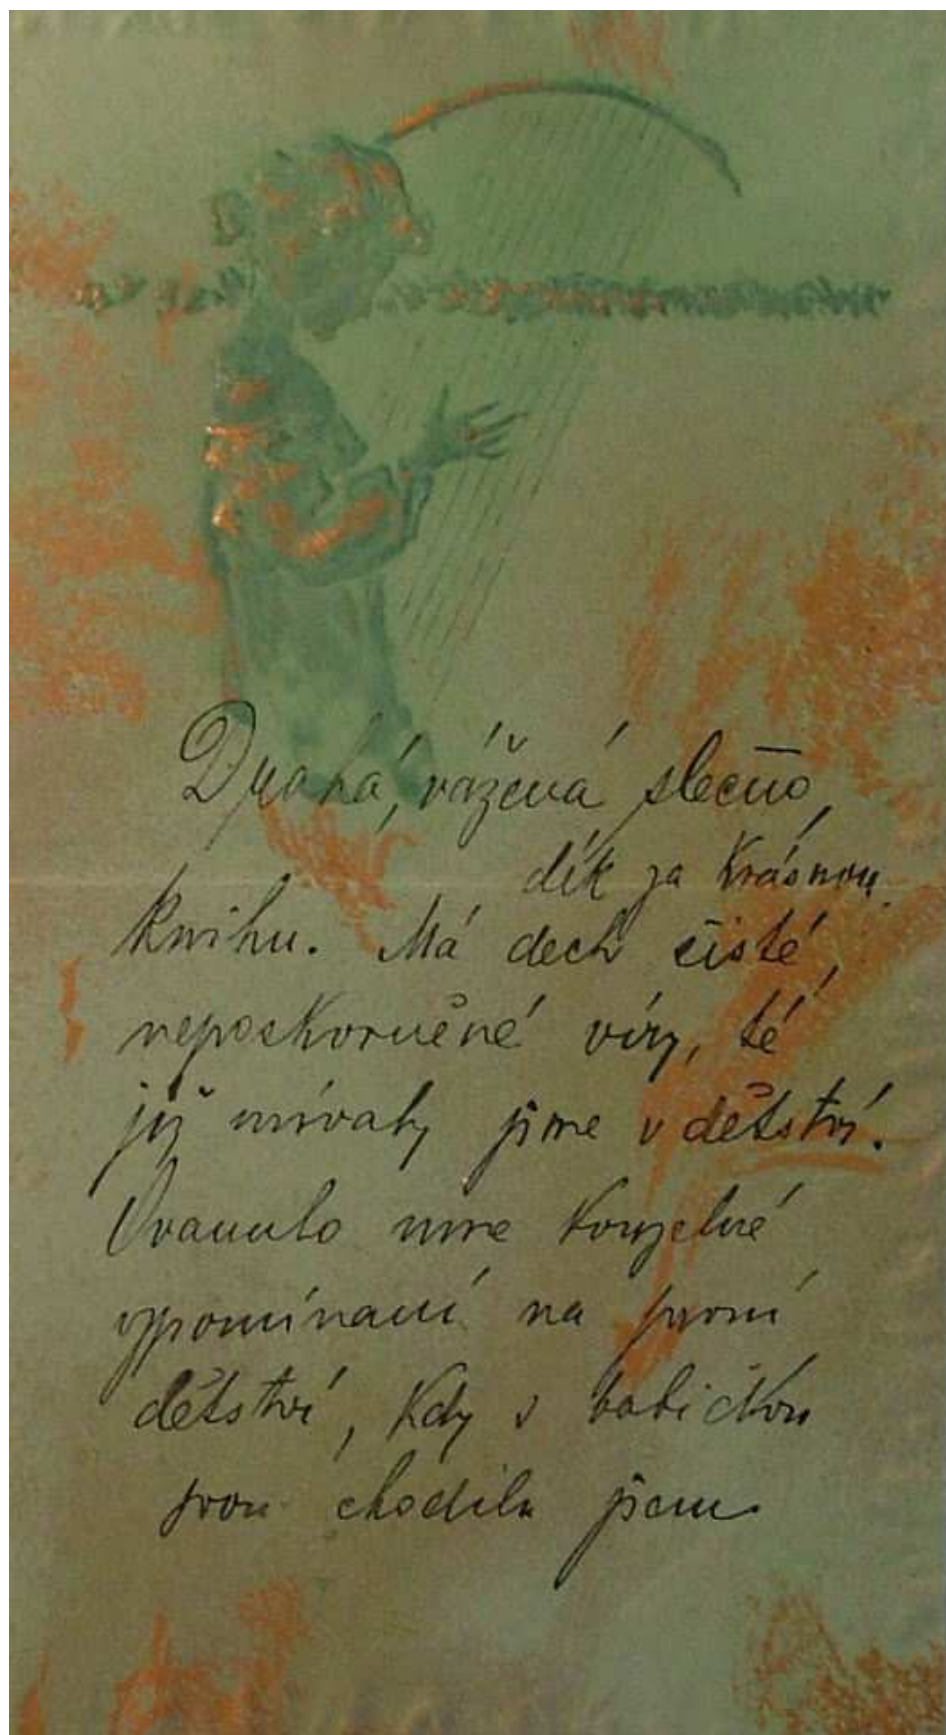 Drahá, vážená slečno,
dík za krásnou
knihu. Má dech čisté,
neposkvrněné víry, té
již mívaly jsme v dětství.
Ovanulo mne kouzelné
vzpomínání na první
dětství, kdy s babičkou
svou chodila jsem